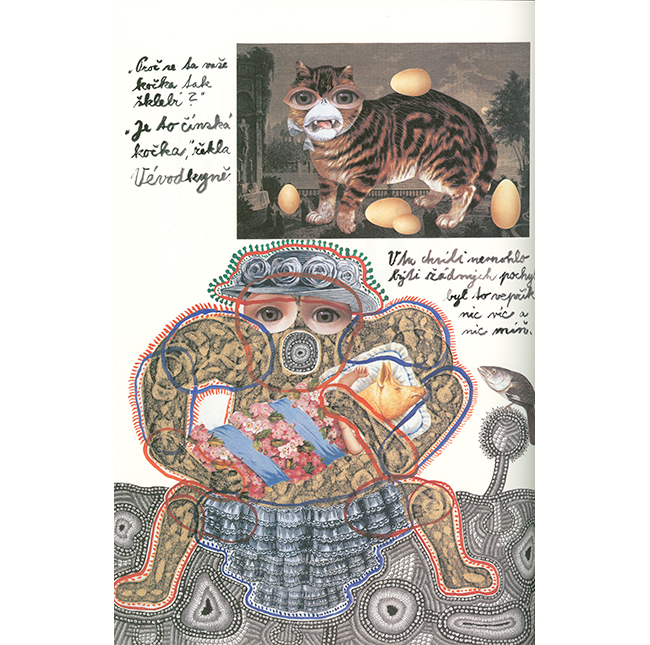 „Proč se ta vaše
kočka tak
šklebí?"
„Je to čínská
kočka," řekla
Vévodkyně.
V tu chvíli nemohlo
býti žádných pochyb
byl to vepřík
nic víc a
nic míň.